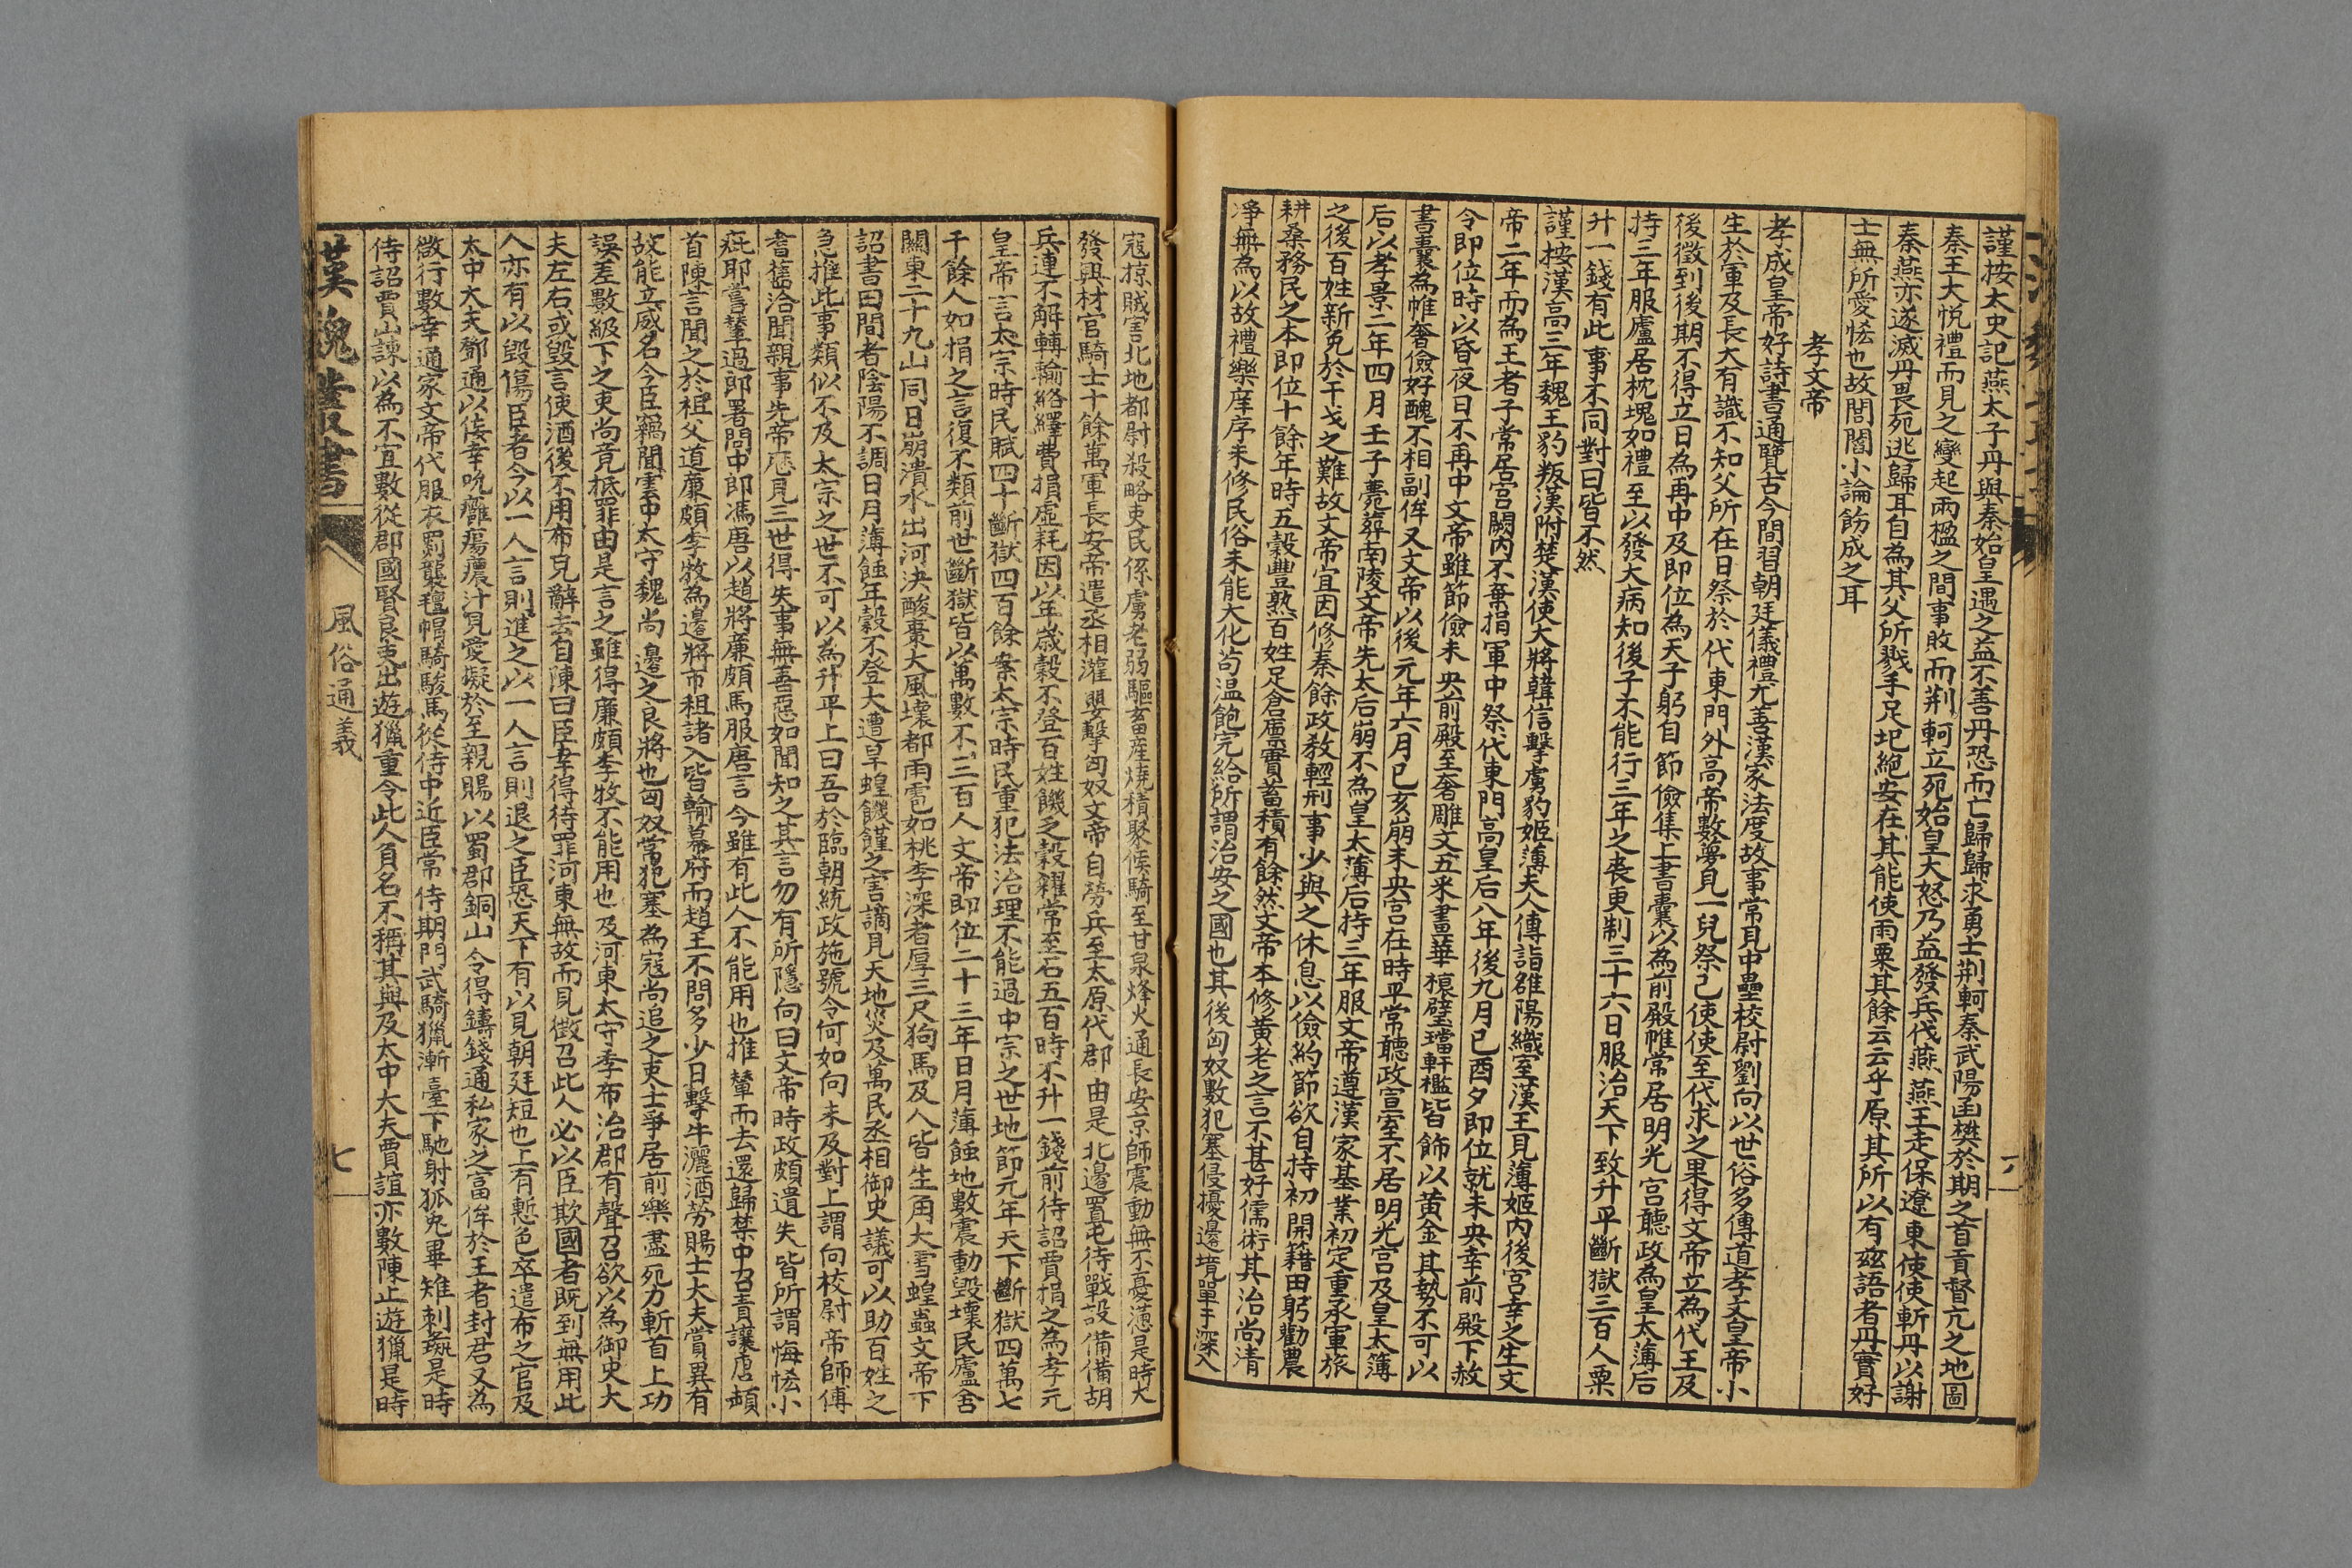 謹按太史記燕太子丹與秦始皇遇之益不善丹恐而亡歸歸求勇士荆軻秦武陽函樊於期之首貢督亢之地圖
秦王大悅禮而見之變起兩楹之間事敗而荆軻立死始皇大怒乃益發兵伐燕燕王走保遼東使使斬丹以謝
秦燕亦遂滅丹畏死逃歸耳自為其父所戮手足圮絕安在其能使雨粟其餘云云乎原其所以有茲語者丹實好
士無所愛恡也故閭閻小論飭成之耳
孝文帝
孝成皇帝好詩書通覽古今間習朝廷儀禮尤善漢家法度故事常見中壘校尉劉向以世俗多傳道孝文皇帝小
生於軍及長大有識不知父所在日祭於代東門外高帝數夢見一兒祭己使使至代求之果得文帝立為代王及
後徵到後期不得立日為再中及即位為天子躬自節儉集上書囊以為前殿帷常居明光宮聽政為皇太薄后
持三年服廬居枕塊如禮至以發大病知後子不能行三年之喪更制三十六日服治天下致升平斷獄三百人粟
升一錢有此事不同對曰皆不然
謹按漢高三年魏王豹叛漢附楚漢使大將韓信擊虜豹姬薄夫人傳詣雒陽織室漢王見薄姬內後宮幸之生文
帝二年而為王者子常居宮闕內不棄捐軍中祭代東門高皇后八年後九月己酉夕即位就未央幸前殿下赦
令即位時以昏夜日不再中文帝雖節儉未央前殿至奢雕文五采畫華榱壁璫軒檻皆飾以黃金其勢不可以
書囊為帷奢儉好醜不相副侔又文帝以後元年六月己亥崩未央宮在時平常聽政宣室不居明光宮及皇太簿
后以孝景二年四月壬子薨葬南陵文帝先太后崩不為皇太薄后持三年服文帝遵漢家基業初定重承軍旅
之後百姓新免於干戈之難故文帝宜因修秦餘政教輕刑事少與之休息以儉約節欲自持初開籍田躬勸農
耕桑務民之本即位十餘年時五穀豐熟百姓足倉廩實蓄積有餘然文帝本修黃老之言不甚好儒術其治尚清
淨無為以故禮樂庠序未修民俗未能大化苟溫飽完給所謂治安之國也其後匈奴數犯塞侵擾邊境單于深入
寇掠賊害北地都尉殺略吏民係虜老弱驅畜產燒積聚候騎至甘泉烽火通長安京師震動無不憂懣是時大
發興材官騎士十餘萬軍長安帝遣丞相灌嬰擊匈奴文帝自勞兵至太原代郡由是北邊置屯待戰設備備胡
兵連不解轉輸絡繹費損虛耗因以年歲穀不登百姓饑乏穀糴常至石五百時不升一錢前待詔賈捐之為孝元
皇帝言太宗時民賦四十斷獄四百餘案太宗時民重犯法治理不能過中宗之世地節元年天下斷獄四萬七
千餘人如捐之言復不類前世斷獄皆以萬數不三百人文帝即位二十三年日月薄蝕地數震動毀壞民廬舍
關東二十九山同日崩潰水出河決酸棗大風壞都雨雹如桃李深者厚三尺狗馬及人皆生角大雪蝗蟲文帝下
詔書曰間者陰陽不調日月薄蝕年穀不登大遭旱蝗饑饉之害謫見天地災及萬民丞相御史議可以助百姓之
急推此事類似不及太宗之世不可以為升平上曰吾於臨朝統政施號令何如向未及對上謂向校尉帝師傅
耆舊洽聞親事先帝歷見三世得失事無善惡如聞知之其言勿有所隱向曰文帝時政頗遺失皆所謂悔恡小
疵耶嘗輦過郎署問中郎馮唐以趙將廉頗馬服唐言今雖有此人不能用也推輦而去還歸禁中召責讓唐頓
首陳言聞之於祖父道廉頗李牧為邊將市租諸入皆輸幕府而趙王不問多少日擊牛灑酒勞賜士大夫賞異有
故能立威名今臣竊聞雲中太守魏尚邊之良將也匈奴常犯塞為寇尚追之吏士爭居前樂盡死力斬首上功
誤差數級下之吏尚竟抵罪由是言之雖得廉頗李牧不能用也及河東太守季布治郡有聲召欲以為御史大
夫左右或毀言使酒後不用布見辭去自陳曰臣幸得待罪河東無故而見徵召此人必以臣欺國者既到無用此
人亦有以毀傷臣者今以一人言則進之以一人言則退之臣恐天下有以見朝廷短也上有慙色卒遣布之官及
太中大夫鄧通以佞幸吮癰瘍膿汁見愛擬於至親賜以蜀郡銅山令得鑄錢通私家之富侔於王者封君又為
微行數幸通家文帝代服衣罽襲氊帽騎駿馬從侍中近臣常侍期門武騎獵漸臺下馳射狐兔畢雉刺彘是時
待詔賈山諫以為不宜數從郡國賢良吏出遊獵重令此人負名不稱其與及太中大夫賈誼亦數陳止遊獵是時
漢魏叢書
風俗通義
七